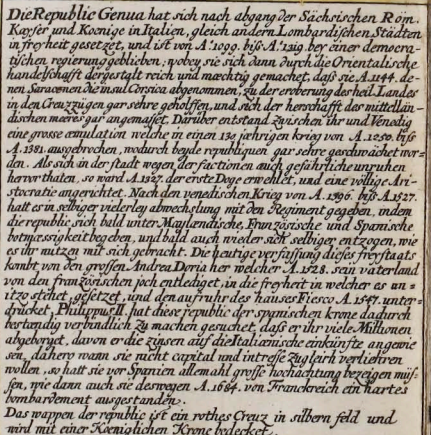 Die Republic Genua hat sich nach abgang der Sächsischen Röm.
Kayser und Koenige in Italien, gleich andern Lombardischen Städten
in freyheit gesetzet, und ist von A. 1099. biß A. 1319. bey einer democra-
tischen regierung geblieben; wobey sie sich dann durch die Orientalische
handelschafft dergestalt reich und mæchtig gemachet, daß sie A. 1144. de-
nen Saracenen die insul Corsica abgenommen, zu der eroberung des heil. Landes
in den Creuzzügen gar sehr geholffen, und sich der herrschafft des mittellän-
dischen meeres gar angemasset. Darüber entstand zwischen ihr und Venedig
eine grosse æmulation welche in einen 130 jæhrigen krieg von A. 1250. biß
A. 1381. ausgebrochen, wodurch beyde republiquen gar sehr geschwächet wor-
den. Als sich in der stadt wegen der factionen auch gefährliche unruhen
hervor thaten, so ward A. 1327. der erste Doge erwehlet, und eine völlige Ari-
stocratie angerichtet. Nach den venedischen Krieg von A. 1396. biß A. 1527.
hatt es in selbiger vielerley abwechslung mit den Regiment gegeben, indem
die republic sich bald unter Mayländische, Französische und Spanische
botmæssigkeit begeben, und bald auch wieder sich selbiger entzogen, wie
es ihr nutzen mit sich gebracht. Die heutige verfassung dieses freystaats
kombt von den grossen Andrea Doria her welcher A. 1528. sein vaterland
von den französischen joch entlediget, in die freyheit in welcher es un=
itzo stehet, gesetzet, und den aufruhr des hauses Fiesco A. 1547. unter-
drücket. Philippus II. hat diese republic der spanischen krone dadurch
bestændig verbindlich zu machen gesuchet, daß er ihr viele Millionen
abgeborget, davon er die zinsen auf die Italiænische einkünfte angewie
sen, dahero wann sie nicht capital und intresse zugleich verliehren
wollen, so hatt sie vor Spanien allemahl grosse hochachtung bezeigen müs-
sen, wie dann auch sie deswegen A. 1684. von Franckreich ein hartes
bombardement ausgestanden.
Das wappen der republic ist ein rothes Creuz in silbern feld und
wird mit einer Kœniglichen Krone bedecket.